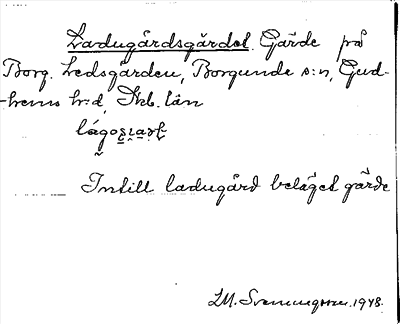 Ladugårdsgärdet. Gärde på
Borg. Ledsgården, Borgunda s:n, Gud-
hems h:d, Skb. län
Intill ladugård beläget gärde
1948.